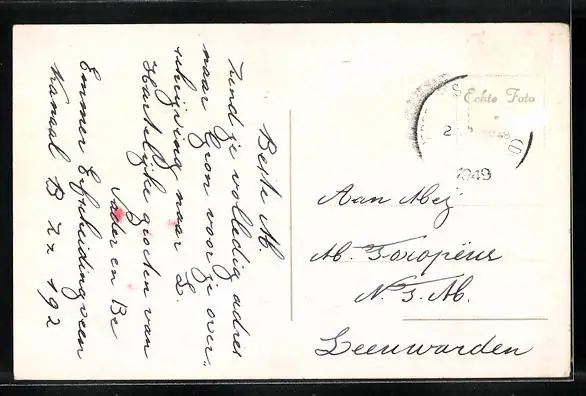 Beste M.
Zend je volledig adres
naar Gron voor je over-
schrijving naar L.
Hartelijke groeten van
Vader en Be
Emmer Erfscheidingveen
Kanaal B Zz 192
Echte Foto
1949
Aan Mej
M.
N. M.
Leeuwarden